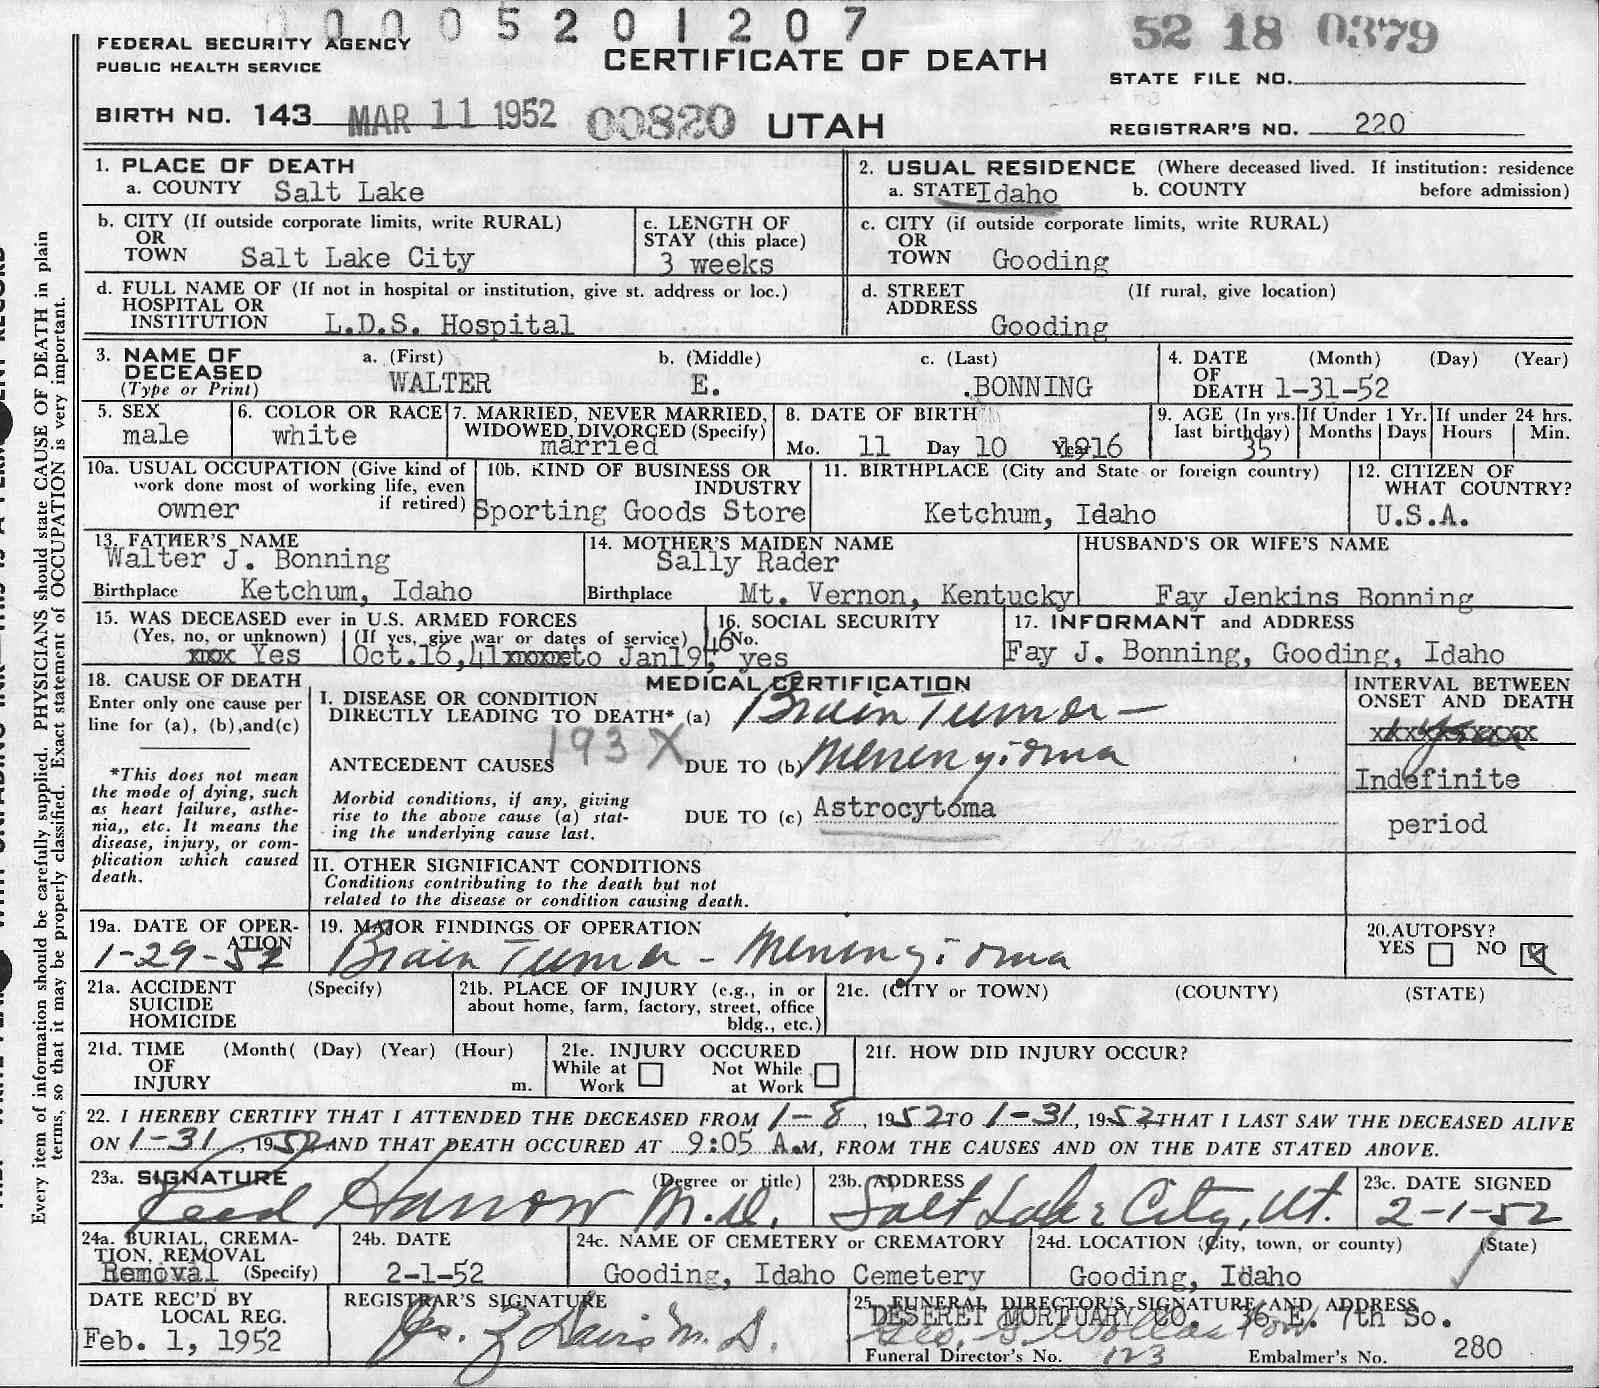 0005201207
52 18 0379
FEDERAL SECURITY AGENCY
PUBLIC HEALTH SERVICE
CERTIFICATE OF DEATH
STATE FILE NO.
BIRTH NO. 143 MAR 11 1952 00820 UTAH
REGISTRAR'S NO. 220
Every item of information should be carefully supplied. PHYSICIANS should state CAUSE OF DEATH in plain
terms, so that it may be properly classified. Exact statement of OCCUPATION is very important.
1. PLACE OF DEATH
a. COUNTY Salt Lake
2. USUAL RESIDENCE (Where deceased lived. If institution: residence
a. STATE Idaho b. COUNTY before admission)
b. CITY (If outside corporate limits, write RURAL)
OR
TOWN Salt Lake City
c. LENGTH OF
STAY (this place)
3 weeks
c. CITY (if outside corporate limits, write RURAL)
OR
TOWN Gooding
d. FULL NAME OF (If not in hospital or institution, give st. address or loc.)
HOSPITAL OR
INSTITUTION L.D.S. Hospital
d. STREET (If rural, give location)
ADDRESS
Gooding
3. NAME OF a. (First) b. (Middle) c. (Last)
DECEASED WALTER E. .BONNING
(Type or Print)
4. DATE (Month) (Day) (Year)
OF
DEATH 1-31-52
5. SEX
male
6. COLOR OR RACE
white
7. MARRIED, NEVER MARRIED,
WIDOWED, DIVORCED (Specify)
married
8. DATE OF BIRTH
Mo. 11 Day 10 Year 1916
9. AGE (In yrs.
last birthday)
35
If Under 1 Yr.
Months Days
If under 24 hrs.
Hours Min.
10a. USUAL OCCUPATION (Give kind of
work done most of working life, even
if retired)
owner
10b. KIND OF BUSINESS OR
INDUSTRY
Sporting Goods Store
11. BIRTHPLACE (City and State or foreign country)
Ketchum, Idaho
12. CITIZEN OF
WHAT COUNTRY?
U.S.A.
13. FATHER'S NAME
Walter J. Bonning
Birthplace Ketchum, Idaho
14. MOTHER'S MAIDEN NAME
Sally Rader
Birthplace Mt. Vernon, Kentucky
HUSBAND'S OR WIFE'S NAME
Fay Jenkins Bonning
15. WAS DECEASED ever in U.S. ARMED FORCES
(Yes, no, or unknown) (If yes, give war or dates of service)
xxx Yes Oct.16,41xxxxxto Jan19, 46
16. SOCIAL SECURITY
No.
yes
17. INFORMANT and ADDRESS
Fay J. Bonning, Gooding, Idaho
18. CAUSE OF DEATH
Enter only one cause per
line for (a), (b),and(c)
*This does not mean
the mode of dying, such
as heart failure, asthe-
nia,, etc. It means the
disease, injury, or com-
plication which caused
death.
MEDICAL CERTIFICATION
I. DISEASE OR CONDITION
DIRECTLY LEADING TO DEATH* (a) Brain Tumor -
193 X
ANTECEDENT CAUSES DUE TO (b) Menengioma
Morbid conditions, if any, giving
rise to the above cause (a) stat-
ing the underlying cause last.
DUE TO (c) Astrocytoma
INTERVAL BETWEEN
ONSET AND DEATH
Indefinite
period
II. OTHER SIGNIFICANT CONDITIONS
Conditions contributing to the death but not
related to the disease or condition causing death.
19a. DATE OF OPER-
ATION
1-29-52
19. MAJOR FINDINGS OF OPERATION
Brain Tumor - Menengioma
20. AUTOPSY?
YES NO
21a. ACCIDENT (Specify)
SUICIDE
HOMICIDE
21b. PLACE OF INJURY (e.g., in or
about home, farm, factory, street, office
bldg., etc.)
21c. (CITY or TOWN) (COUNTY) (STATE)
21d. TIME (Month( (Day) (Year) (Hour)
OF
INJURY m.
21e. INJURY OCCURED
While at Not While
Work at Work
21f. HOW DID INJURY OCCUR?
22. I HEREBY CERTIFY THAT I ATTENDED THE DECEASED FROM 1-8, 1952 TO 1-31, 1952 THAT I LAST SAW THE DECEASED ALIVE
ON 1-31, 1952 AND THAT DEATH OCCURED AT 9:05 A.M, FROM THE CAUSES AND ON THE DATE STATED ABOVE.
23a. SIGNATURE (Degree or title)
Reed Harrow M.D.
23b. ADDRESS
Salt Lake City, Ut.
23c. DATE SIGNED
2-1-52
24a. BURIAL, CREMA-
TION, REMOVAL
Removal (Specify)
24b. DATE
2-1-52
24c. NAME OF CEMETERY or CREMATORY
Gooding, Idaho Cemetery
24d. LOCATION (City, town, or county) (State)
Gooding, Idaho
DATE REC'D BY
LOCAL REG.
Feb. 1, 1952
REGISTRAR'S SIGNATURE
Jas. Z Davis M.D.
25. FUNERAL DIRECTOR'S SIGNATURE AND ADDRESS
DESERET MORTUARY CO. 36 E. 7th So.
Funeral Director's No. 123 Embalmer's No. 280